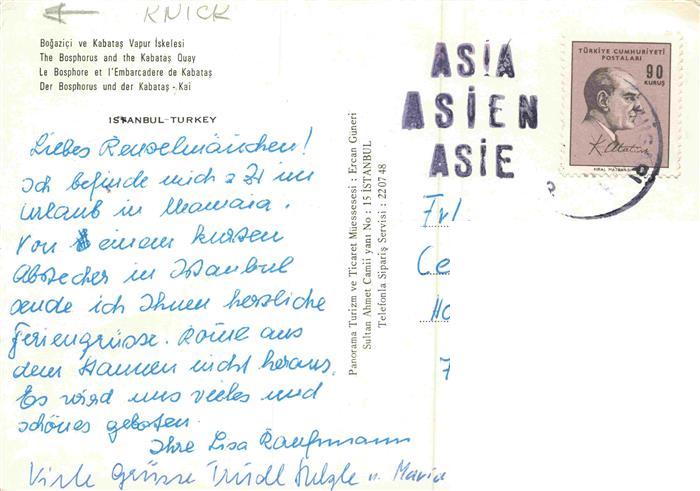 KNICK
Boğaziçi ve Kabataş Vapur İskelesi
The Bosphorus and the Kabataş Quay
Le Bosphore et l'Embarcadere de Kabataş
Der Bosphorus und der Kabataş - Kai
ISTANBUL - TURKEY
Liebes
Ich befinde mich z Zt im
Urlaub in Mamaia.
Von einem kurzen
Abstecher in Istanbul
sende ich Ihnen herzliche
Feriengrüsse. Komme aus
dem Staunen nicht heraus.
Es wird uns vieles und
schönes geboten.
Ihre Lisa Kaufmann
Viele Grüsse Trudl u. Maria
Panorama Turizm ve Ticaret Müessesesi : Ercan Güneri
Sultan Ahmet Camii yanı No : 15 İSTANBUL
Telefonla Sipariş Servisi : 22 07 48
ASIA
ASIEN
ASIE
TÜRKİYE CUMHURİYETİ
POSTALARI
90
KURUŞ
K. Atatürk
Frl
Ce
Ho
7